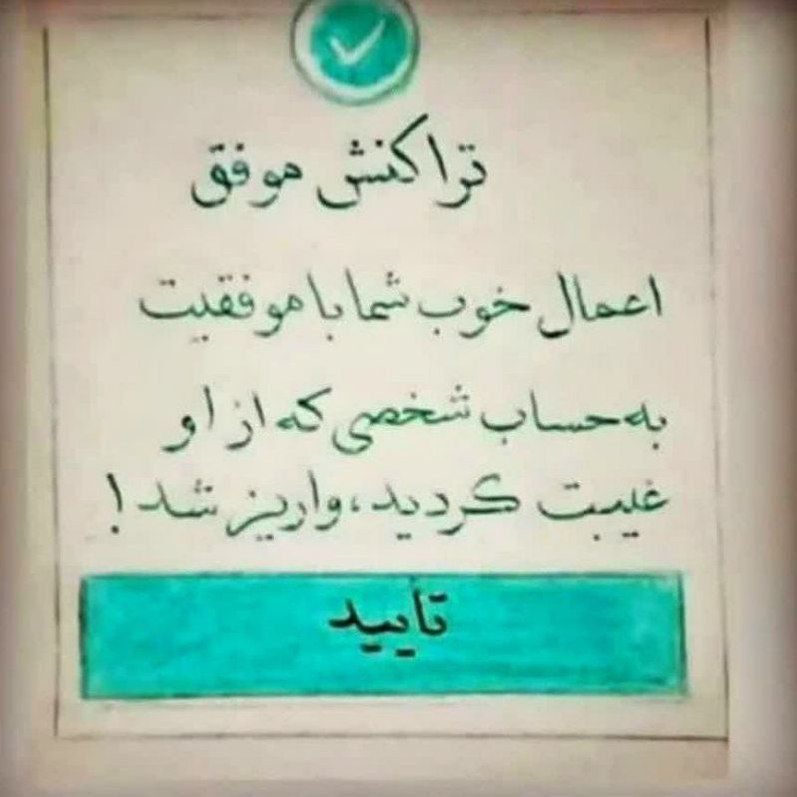 تراکنش موفق
اعمال خوب شما با موفقیت
به حساب شخصی که از او
غیبت کردید، واریز شد!
تأیید